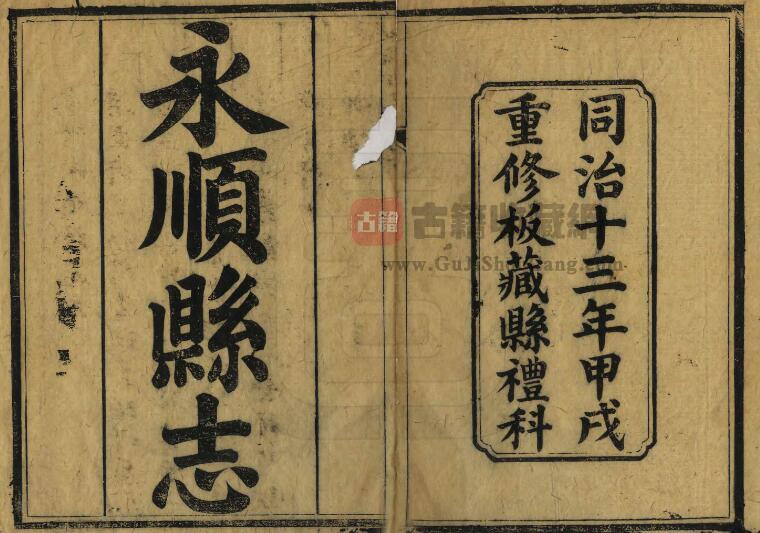 永順縣志
同治十三年甲戌
重修板藏縣禮科
古籍
古籍收藏網
www.GuJiShuCang.com